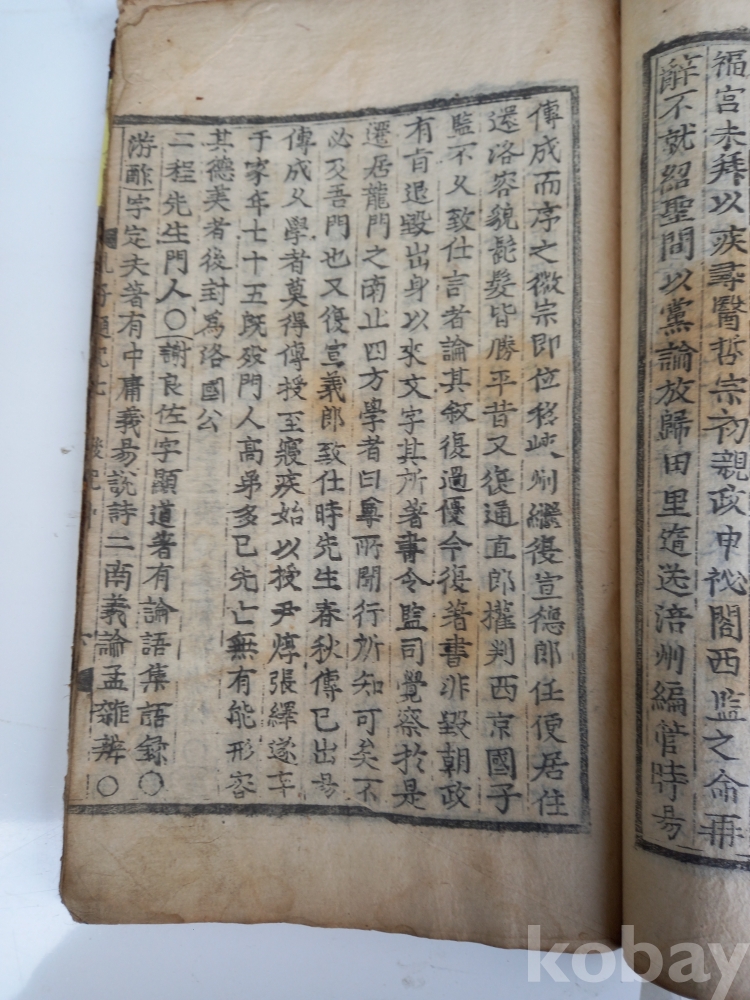 福宫未拜以疾尋醫哲宗初親政申祕閣西監之命再
辭不就紹聖間以黨論放歸田里遣送涪州編管時易
傳成而序之徽宗即位移峽州繼復宣德郎任便居住
還洛容貌髭髮皆勝平昔又復通直郎權判西京國子
監不乆致仕言者論其叙復過優今復著書非毀朝政
有肯退毀出身以來文字其所著書令監司覺察於是
遷居龍門之南止四方學者曰尊所聞行所知可矣不
必及吾門也又復宣義郎致仕時先生春秋傳已出易
傳成乆學者莫得傳授至寢疾始以授尹焞張繹遂卒
于家年七十五旣歿門人高弟多已先亡無有能形容
其德美者後封爲洛國公
二程先生門人〇謝良佐字顯道著有論語集語錄〇
游酢字定夫著有中庸義易說詩二南義論孟雜辨〇
kobay